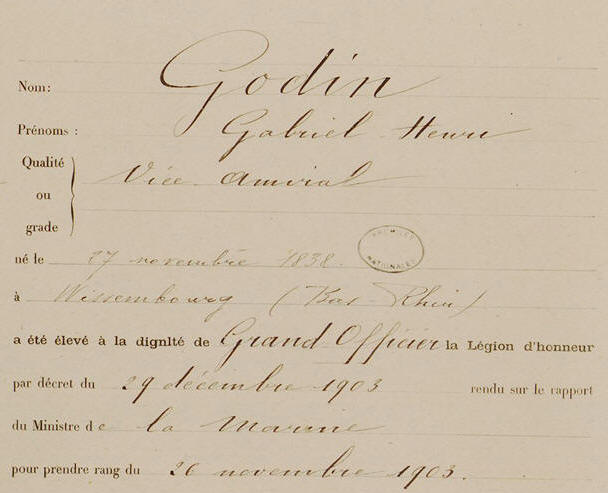 Nom: Godin
Prénoms : Gabriel Henri
Qualité
Vice Amiral
ou
grade
ARCHIVES
NATIONALES
né le 27 novembre 1838.
à Wissembourg (Bas Rhin)
a été élevé à la dignité de Grand Officier la Légion d'honneur
par décret du 29 décembre 1903 rendu sur le rapport
du Ministre de la Marine
pour prendre rang du 26 novembre 1903.